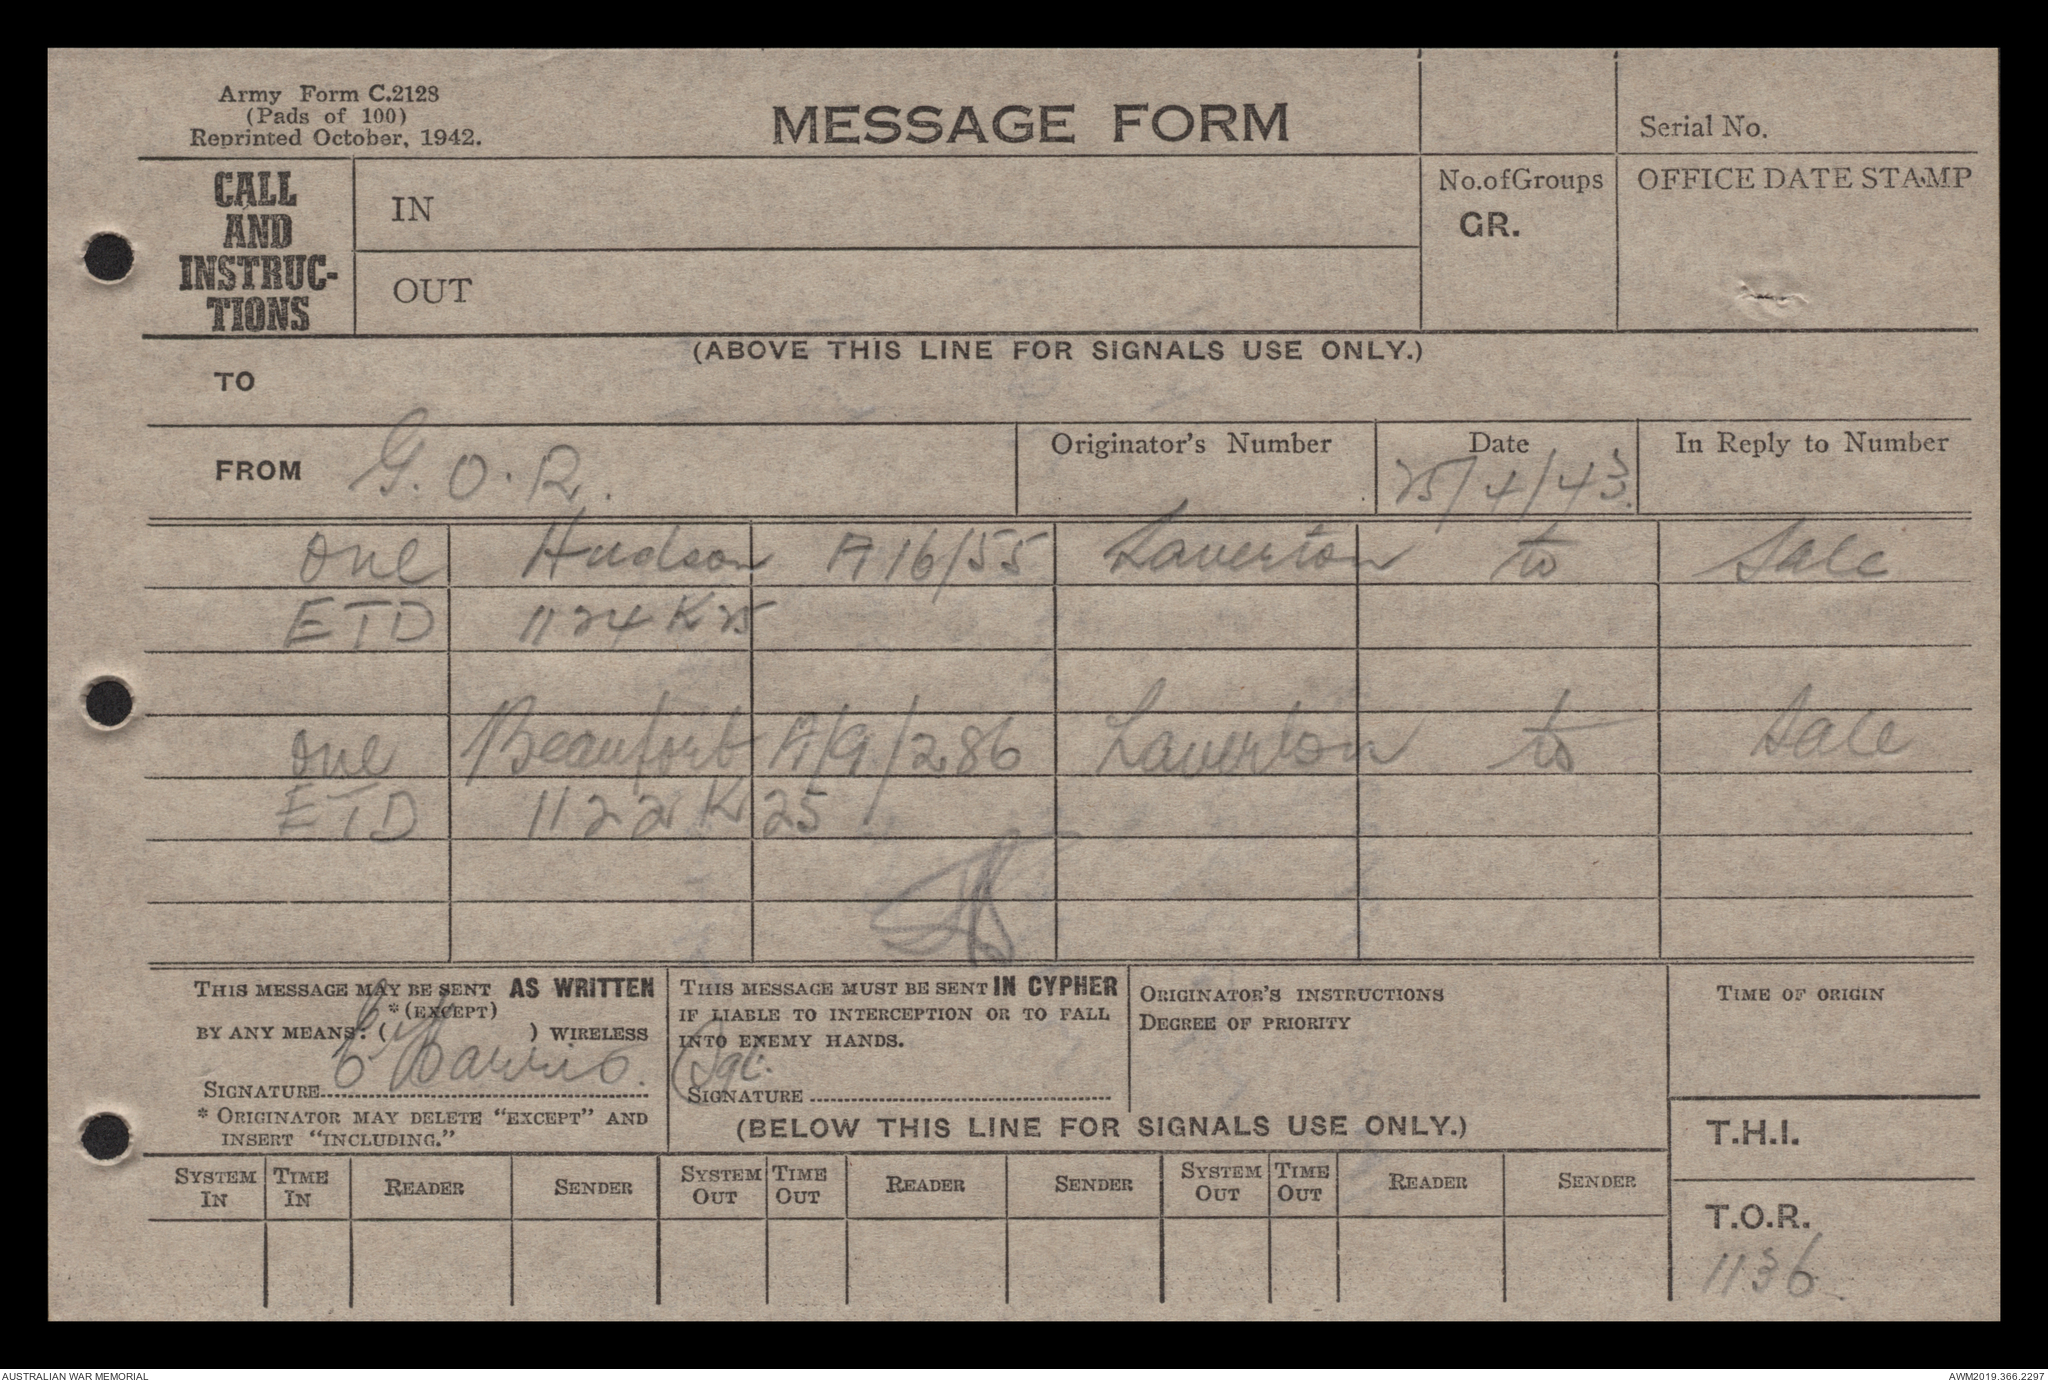 Army Form C.2128
(Pads of 100)
Reprinted October, 1942.
MESSAGE FORM
Serial No.
CALL
AND
INSTRUC-
TIONS
IN
OUT
No. of Groups
GR.
OFFICE DATE STAMP
(ABOVE THIS LINE FOR SIGNALS USE ONLY.)
TO
FROM G.O.R.
Originator's Number
Date
25/4/43.
In Reply to Number
One Hudson A16/55 Laverton to Sale
ETD 1124 K 25
One Beaufort A/9/286 Laverton to Sale
ETD 1122 K 25
THIS MESSAGE MAY BE SENT AS WRITTEN
*(EXCEPT)
BY ANY MEANS. ( ) WIRELESS
Harris. Sgt.
SIGNATURE
* ORIGINATOR MAY DELETE "EXCEPT" AND
INSERT "INCLUDING."
THIS MESSAGE MUST BE SENT IN CYPHER
IF LIABLE TO INTERCEPTION OR TO FALL
INTO ENEMY HANDS.
SIGNATURE
ORIGINATOR'S INSTRUCTIONS
DEGREE OF PRIORITY
TIME OF ORIGIN
(BELOW THIS LINE FOR SIGNALS USE ONLY.)
T.H.I.
SYSTEM IN TIME IN READER SENDER SYSTEM OUT TIME OUT READER SENDER SYSTEM OUT TIME OUT READER SENDER
T.O.R.
1136
AUSTRALIAN WAR MEMORIAL
AWM2019.366.2297